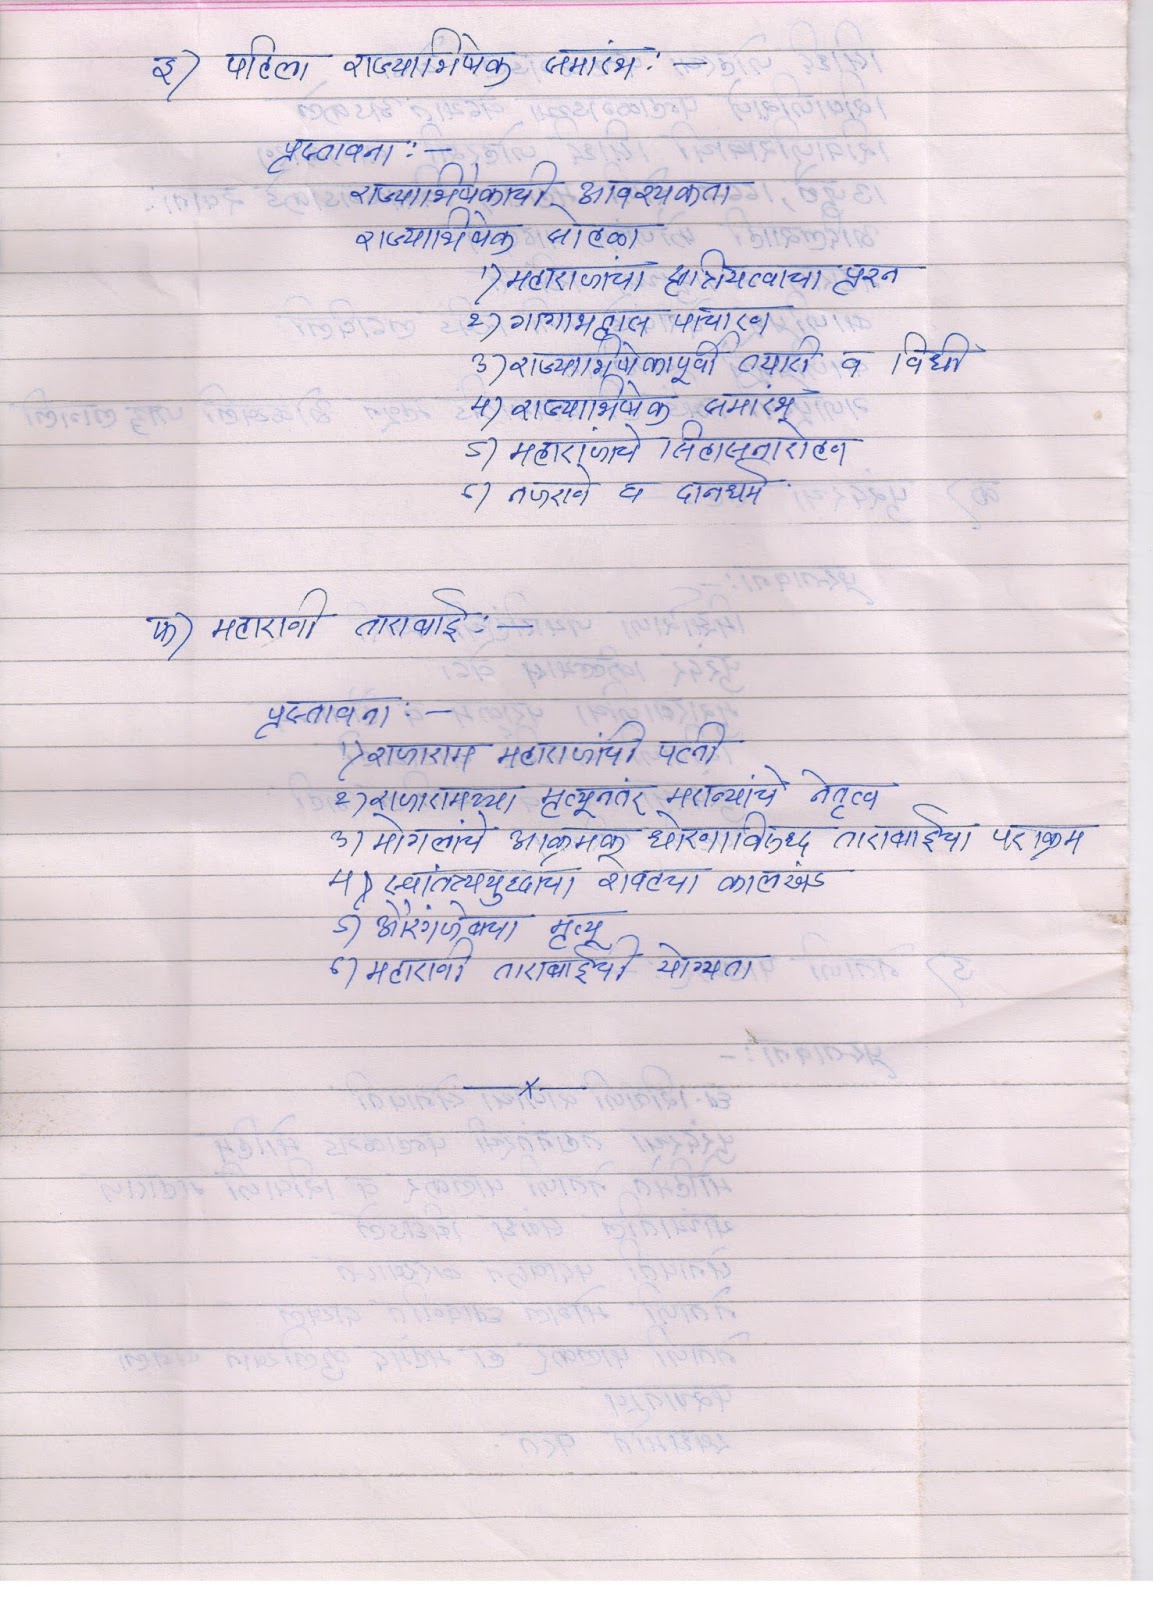 इ) पहिला राज्याभिषेक समारंभ : —
प्रस्तावना : —
राज्याभिषेकाची आवश्यकता
राज्याभिषेक सोहळा
१) महाराजांचा क्षत्रियत्वाचा प्रश्न
२) गागाभट्टाल पाचारण
३) राज्याभिषेकापूर्वी तयारी व विधी
४) राज्याभिषेक समारंभ
५) महाराजांचे सिहासनारोहण
६) नजराने व दानधर्म
फ) महाराणी ताराबाई : —
प्रस्तावना : —
१) राजाराम महाराजांची पत्नी
२) राजारामच्या मृत्यूनतंर मराठ्यांचे नेतृत्व
३) मोगलांचे आक्रमक धोरणाविरुध्द ताराबाईचा पराक्रम
४) स्वांतत्र्ययुध्दाचा शेवटचा कालखंड
५) औरंगजेबाचा मृत्यू
६) महाराणी ताराबाईची योग्यता
—x—